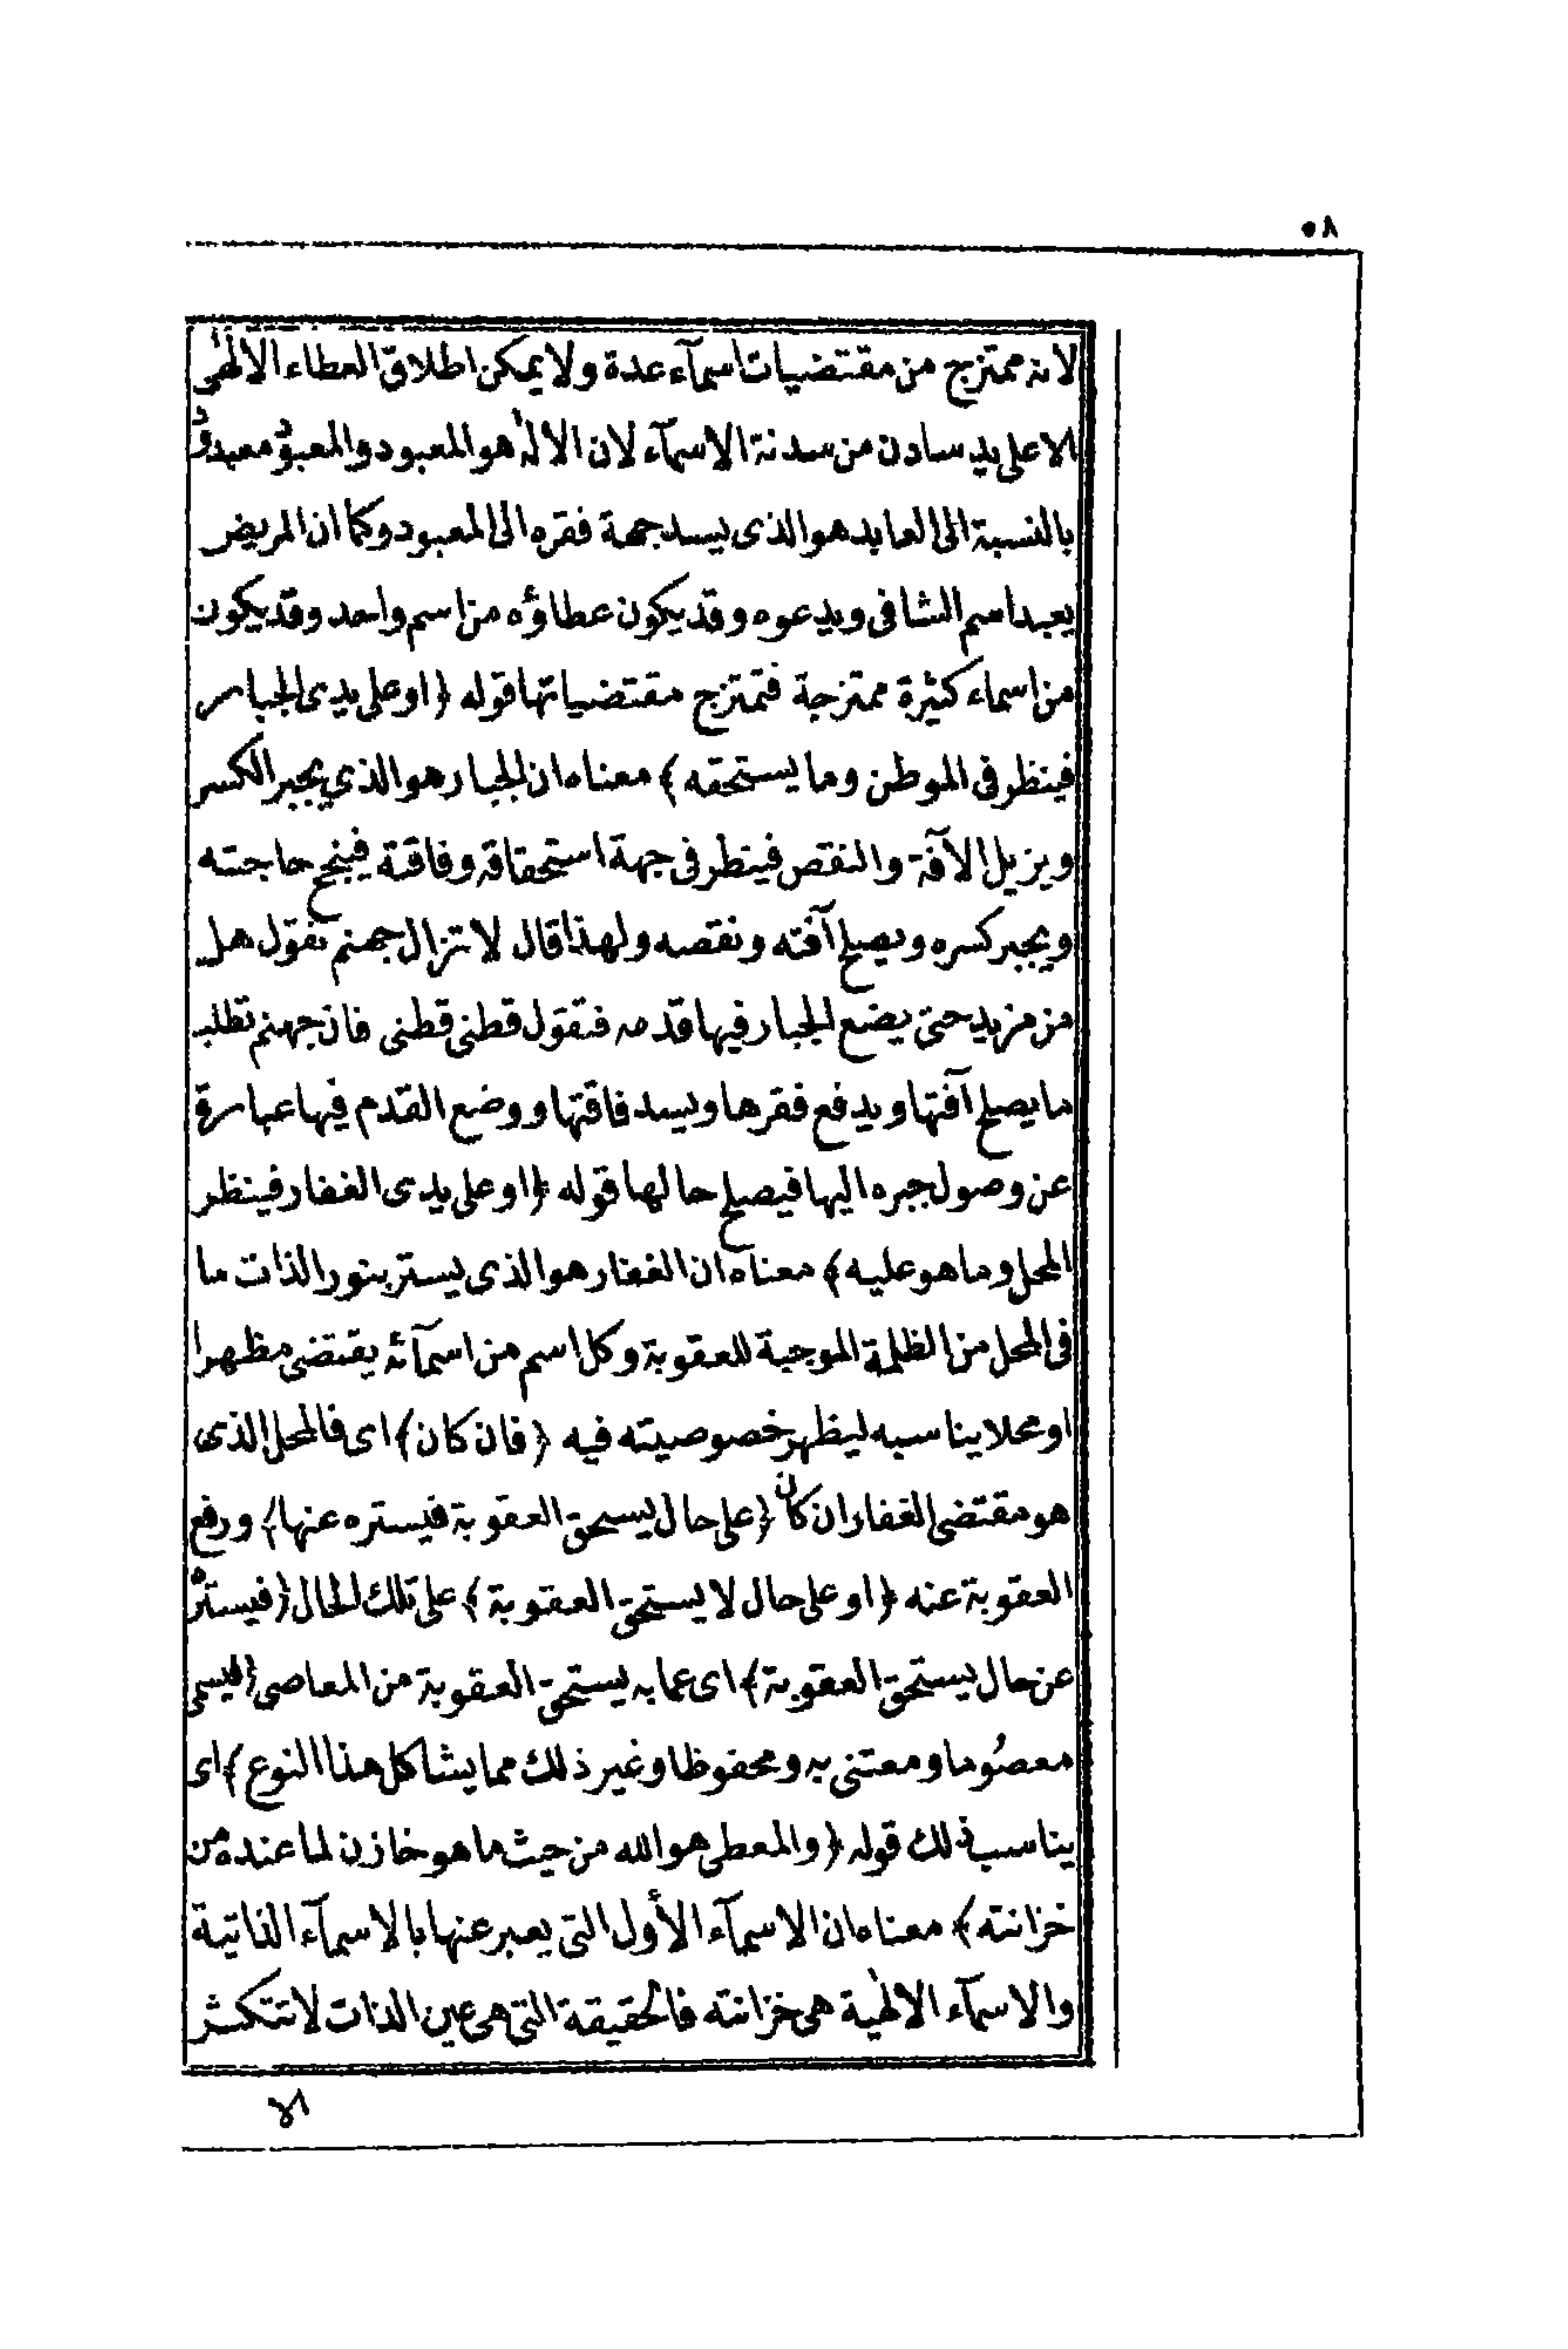 ٥٨
لانه ممتزج من مقتضيات اسمآء عدة ولا يمكن اطلاق العطاء الالهى
الا على يد سادن من سدنة الاسمآء لان الاله هو المعبود والمعبود معبود
بالنسبة الى العابد هو الذى يسد جهة فقره الى المعبود وكما ان المريض
يعبد اسم الشافى ويدعوه وقد يكون عطاؤه من اسم واحد وقد يكون
من اسماء كثيرة ممتزجة فتمتزج مقتضياتها قوله ﴿اوعلى يدى الجبار
فينظر فى الموطن وما يستحقه﴾ معناه ان الجبار هو الذي يجبر الكسر
ويزيل الآفة والنقص فينظر فى جهة استحقاقه وفاقته فينجح حاجته
ويجبر كسره ويصلح آفته ونقصه ولهذا قال لا تزال جهنم تقول هل
من مزيد حتى يضع الجبار فيها قدمه فتقول قطنى قطنى فان جهنم تطلب
ما يصلح آفتها ويدفع فقرها ويسد فاقتها ووضع القدم فيها عبارة
عن وصول جبره اليها فيصلح حالها قوله ﴿اوعلى يدى الغفار فينظر
المحل وما هو عليه﴾ معناه ان الغفار هو الذى يستر بنور الذات ما
فى المحل من الظلمة الموجبة للعقوبة وكل اسم من اسمآئه يقتضى مظهرا
او محلا يناسبه ليظهر خصوصيته فيه ﴿فان كان﴾ اى فالمحل الذى
هو مقتضى الغفار ان كان ﴿على حال يستحق العقوبة فيستره عنها﴾ ورفع
العقوبة عنه ﴿اوعلى حال لا يستحق العقوبة﴾ على تلك الحال ﴿فيستره
عن حال يستحق العقوبة﴾ اى عما به يستحق العقوبة من المعاصى ﴿فيسمى
معصُوما ومعتنى به ومحفوظا وغير ذلك مما يشاكل هذا النوع﴾ اى
يناسب ذلك قوله ﴿والمعطى هو الله من حيث ما هو خازن لما عنده من
خزانته﴾ معناه ان الاسمآء الأول التى يعبر عنها بالاسمآء الذاتية
والاسمآء الالهية هى خزانته فالحقيقة التى هى عين الذات لا تتكثر
الا